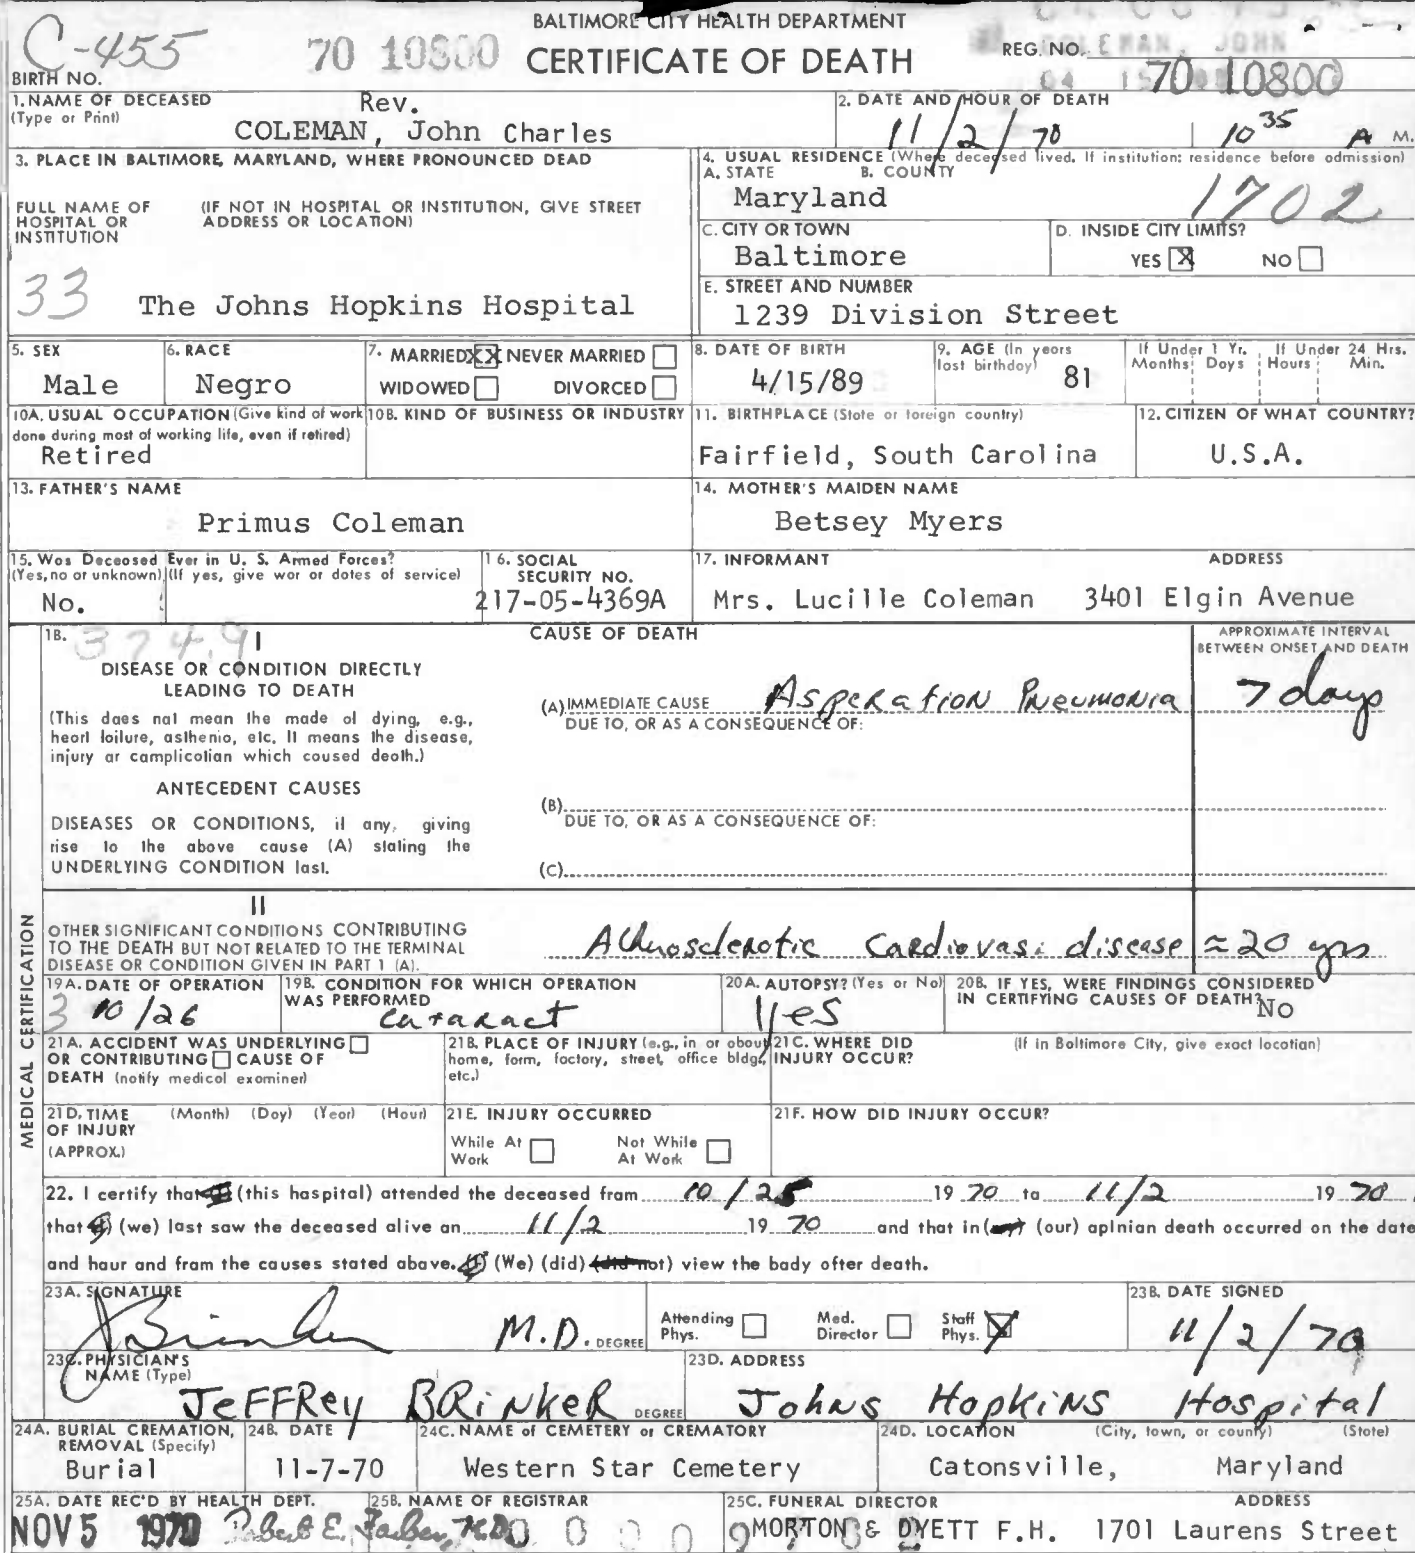 BALTIMORE CITY HEALTH DEPARTMENT
C-455 70 10800 CERTIFICATE OF DEATH REG. NO. COLEMAN, JOHN
BIRTH NO. 70 10800
1. NAME OF DECEASED (Type or Print) Rev.
COLEMAN, John Charles
2. DATE AND HOUR OF DEATH
11/2/70 10 35 A M.
3. PLACE IN BALTIMORE, MARYLAND, WHERE PRONOUNCED DEAD
FULL NAME OF HOSPITAL OR INSTITUTION (IF NOT IN HOSPITAL OR INSTITUTION, GIVE STREET ADDRESS OR LOCATION)
33 The Johns Hopkins Hospital
4. USUAL RESIDENCE (Where deceased lived. If institution: residence before admission)
A. STATE B. COUNTY
Maryland 1702
C. CITY OR TOWN
Baltimore
D. INSIDE CITY LIMITS?
YES X NO
E. STREET AND NUMBER
1239 Division Street
5. SEX
Male
6. RACE
Negro
7. MARRIED XX NEVER MARRIED
WIDOWED DIVORCED
8. DATE OF BIRTH
4/15/89
9. AGE (In years last birthday) 81
If Under 1 Yr. If Under 24 Hrs.
Months Days Hours Min.
10A. USUAL OCCUPATION (Give kind of work done during most of working life, even if retired)
Retired
10B. KIND OF BUSINESS OR INDUSTRY
11. BIRTHPLACE (State or foreign country)
Fairfield, South Carolina
12. CITIZEN OF WHAT COUNTRY?
U.S.A.
13. FATHER'S NAME
Primus Coleman
14. MOTHER'S MAIDEN NAME
Betsey Myers
15. Was Deceased Ever in U. S. Armed Forces?
(Yes, no or unknown) (If yes, give war or dates of service)
No.
16. SOCIAL SECURITY NO.
217-05-4369A
17. INFORMANT ADDRESS
Mrs. Lucille Coleman 3401 Elgin Avenue
MEDICAL CERTIFICATION
18. 374.9 I CAUSE OF DEATH
APPROXIMATE INTERVAL BETWEEN ONSET AND DEATH
DISEASE OR CONDITION DIRECTLY LEADING TO DEATH
(This does not mean the mode of dying, e.g., heart failure, asthenia, etc. It means the disease, injury or complication which caused death.)
(A) IMMEDIATE CAUSE Asperation Pneumonia 7 days
DUE TO, OR AS A CONSEQUENCE OF:
ANTECEDENT CAUSES
DISEASES OR CONDITIONS, if any, giving rise to the above cause (A) stating the UNDERLYING CONDITION last.
(B)
DUE TO, OR AS A CONSEQUENCE OF:
(C)
II
OTHER SIGNIFICANT CONDITIONS CONTRIBUTING TO THE DEATH BUT NOT RELATED TO THE TERMINAL DISEASE OR CONDITION GIVEN IN PART 1 (A).
Atherosclerotic Cardiovasc disease ≈20 yrs
19A. DATE OF OPERATION
3 10/26
19B. CONDITION FOR WHICH OPERATION WAS PERFORMED
cataract
20A. AUTOPSY? (Yes or No)
Yes
20B. IF YES, WERE FINDINGS CONSIDERED IN CERTIFYING CAUSES OF DEATH? No
21A. ACCIDENT WAS UNDERLYING OR CONTRIBUTING CAUSE OF DEATH (notify medical examiner)
21B. PLACE OF INJURY (e.g., in or about home, farm, factory, street, office bldg., etc.)
21C. WHERE DID INJURY OCCUR? (If in Baltimore City, give exact location)
21D. TIME OF INJURY (APPROX.) (Month) (Day) (Year) (Hour)
21E. INJURY OCCURRED
While At Work Not While At Work
21F. HOW DID INJURY OCCUR?
22. I certify that (I) (this hospital) attended the deceased from 10/25 19 70 to 11/2 19 70,
that (I) (we) last saw the deceased alive on 11/2 19 70 and that in (my) (our) opinion death occurred on the date
and hour and from the causes stated above. (I) (We) (did) (did not) view the body after death.
23A. SIGNATURE
J Brinker M.D. DEGREE
Attending Phys. Med. Director Staff Phys. X
23B. DATE SIGNED
11/2/70
23C. PHYSICIAN'S NAME (Type)
Jeffrey Brinker DEGREE
23D. ADDRESS
Johns Hopkins Hospital
24A. BURIAL CREMATION, REMOVAL (Specify)
Burial
24B. DATE
11-7-70
24C. NAME of CEMETERY or CREMATORY
Western Star Cemetery
24D. LOCATION (City, town, or county) (State)
Catonsville, Maryland
25A. DATE REC'D BY HEALTH DEPT.
NOV 5 1970
25B. NAME OF REGISTRAR
Robert E. Farber, M.D.
25C. FUNERAL DIRECTOR ADDRESS
MORTON & DYETT F.H. 1701 Laurens Street